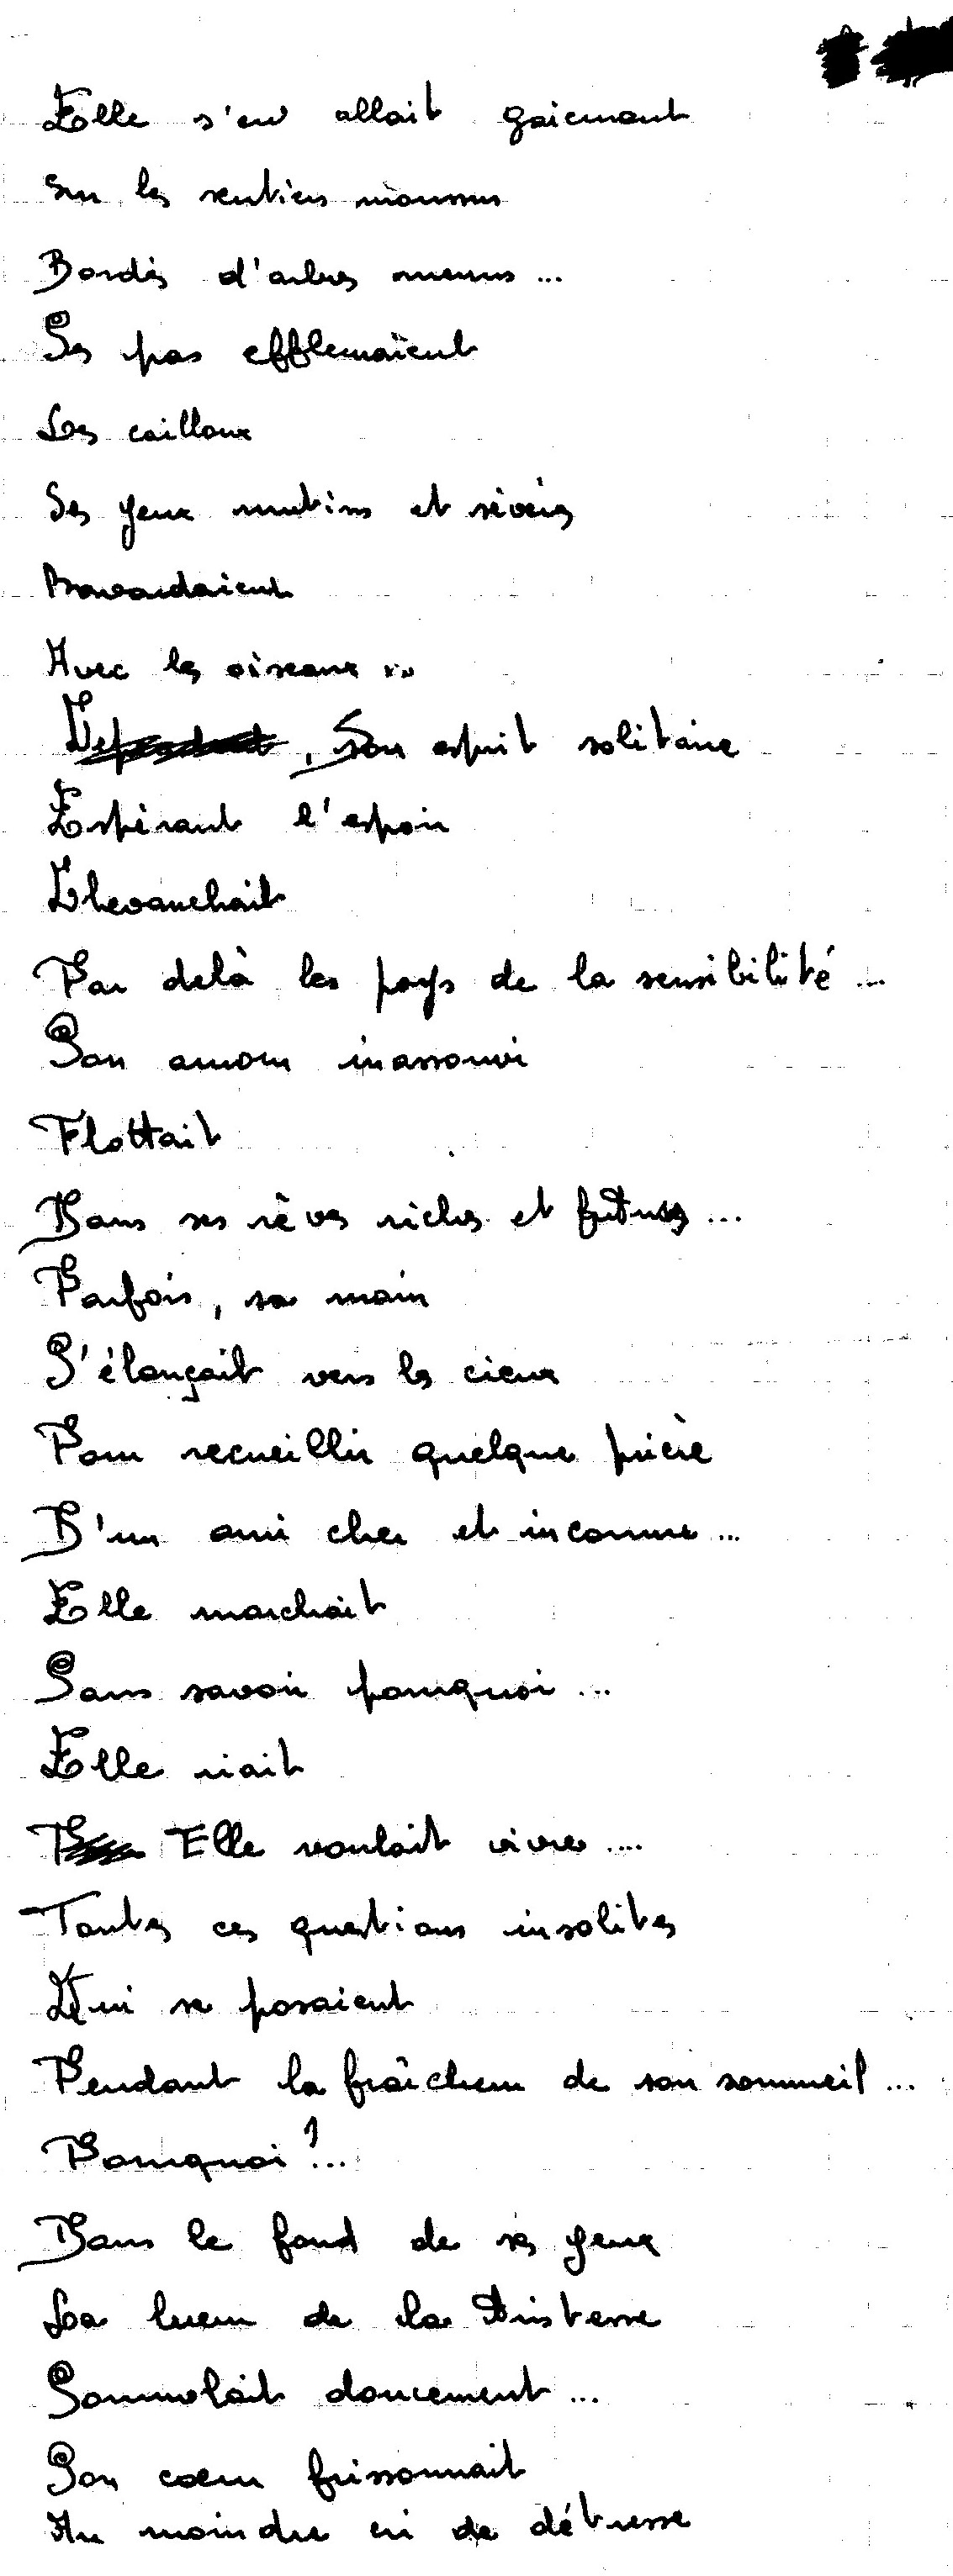 Elle s'en allait gaiemant
Sur les sentiers moussus
Bordés d'arbres menus ...
Ses pas effleuraient
Les cailloux
Ses yeux mutins et sévères
Bavardaient
Avec les oiseaux ...
, Son esprit solitaire
Espérant l'espoir
Chevauchait
Par delà les pays de la sensibilité ...
Son amour inassouvi
Flottait
Dans ses rêves riches et futurs ...
Parfois, sa main
S'élançait vers les cieux
Pour recueillir quelque prière
D'un ami cher et inconnu ...
Elle marchait
Sans savoir pourquoi ...
Elle riait
Elle voulait vivre ....
Toutes ces questions insolites
Qui se posaient
Pendant la fraîcheur de son sommeil ...
Pourquoi ?...
Dans le fond de ses yeux
La lueur de la tristesse
Somnolait doucement ...
Son coeur frissonnait
Au moindre cri de détresse